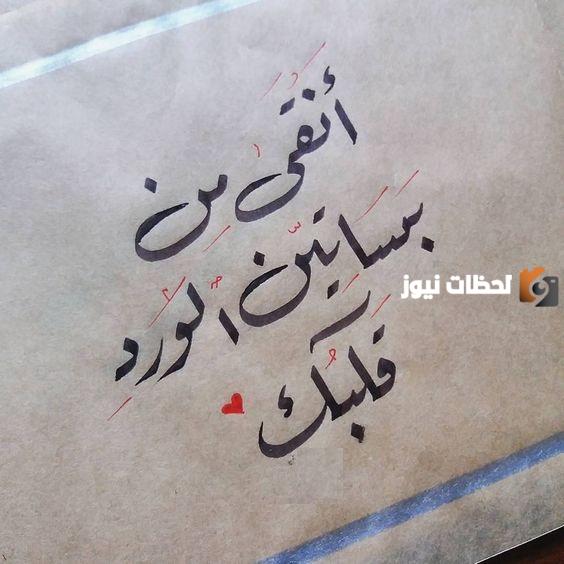 أنقى من
بساتين الورد
قلبك
لحظات نيوز